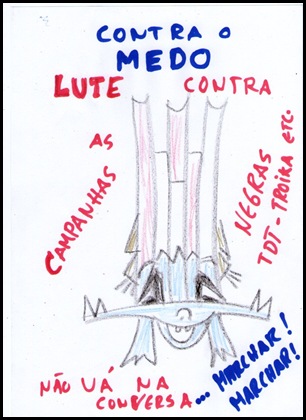 CONTRA O
MEDO
LUTE CONTRA
AS
CAMPANHAS
NEGRAS
TDT - TROIKA ETC.
NÃO VÁ NA
CONVERSA... MARCHAR!
MARCHAR!